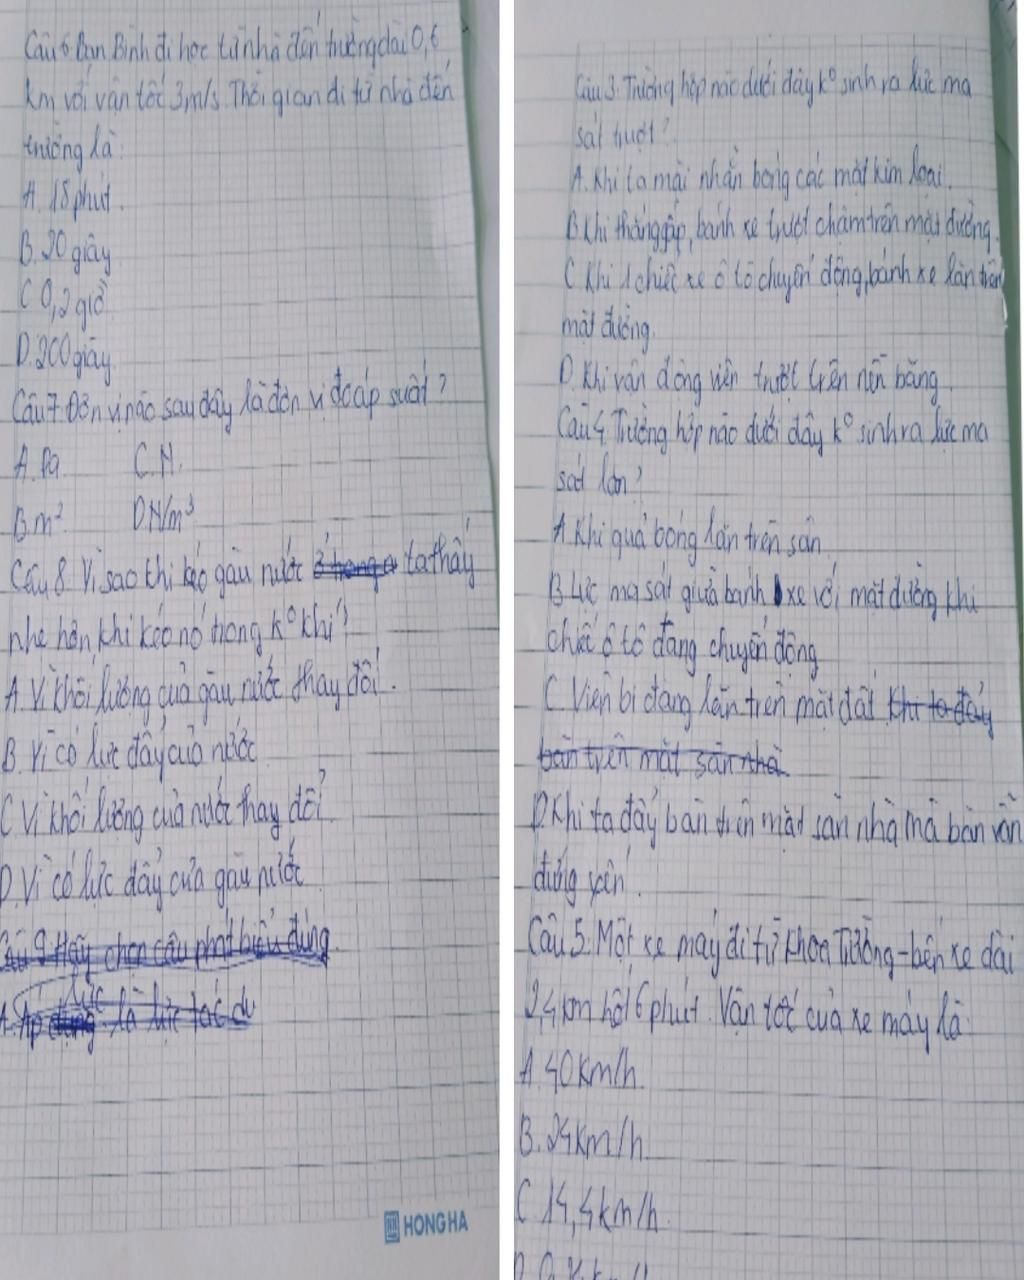 Câu 6 Bạn Bình đi học từ nhà đến trường dài 0,6
km với vận tốc 3m/s. Thời gian đi từ nhà đến
trường là:
A. 18 phút.
B. 20 giây
C 0,2 giờ
D. 200 giây
Câu 7. Đơn vị nào sau đây là đơn vị đo áp suất?
A. Pa C. N.
B. m² D N/m³
Câu 8. Vì sao khi kéo gàu nước ở trong ta thấy
nhẹ hơn khi kéo nó trong k° khí?
A. Vì khối lượng của gàu nước thay đổi.
B. Vì có lực đẩy của nước
C Vì khối lượng của nước thay đổi
D. Vì có lực đẩy của gàu nước
Câu 9. Hãy chọn câu phát biểu đúng
lực
A. Áp dụng là lực tác du
HONG HA
Câu 3. Trường hợp nào dưới đây k° sinh ra lực ma
sát trượt?
A. Khi ta mài nhẵn bóng các mặt kim loại.
B. Khi thắng gấp, bánh xe trượt chậm trên mặt đường.
C Khi 1 chiếc xe ô tô chuyển động, bánh xe lăn trên
mặt đường.
D. Khi vận động viên trượt trên nền băng.
Câu 4. Trường hợp nào dưới đây k° sinh ra lực ma
sát lăn?
A. Khi quả bóng lăn trên sân
B. Lực ma sát giữa bánh xe với mặt đường khi
chiếc ô tô đang chuyển động
C. Viên bi đang lăn trên mặt đất khi ta đẩy
bàn trên mặt sàn nhà
D. Khi ta đẩy bàn trên mặt sàn nhà mà bàn vẫn
đứng yên.
Câu 5. Một xe máy đi từ Khoa Trường - bến xe dài
2,4 km hết 6 phút. Vận tốc của xe máy là:
A. 40 km/h.
B. 24 km/h.
C 14,4 km/h.